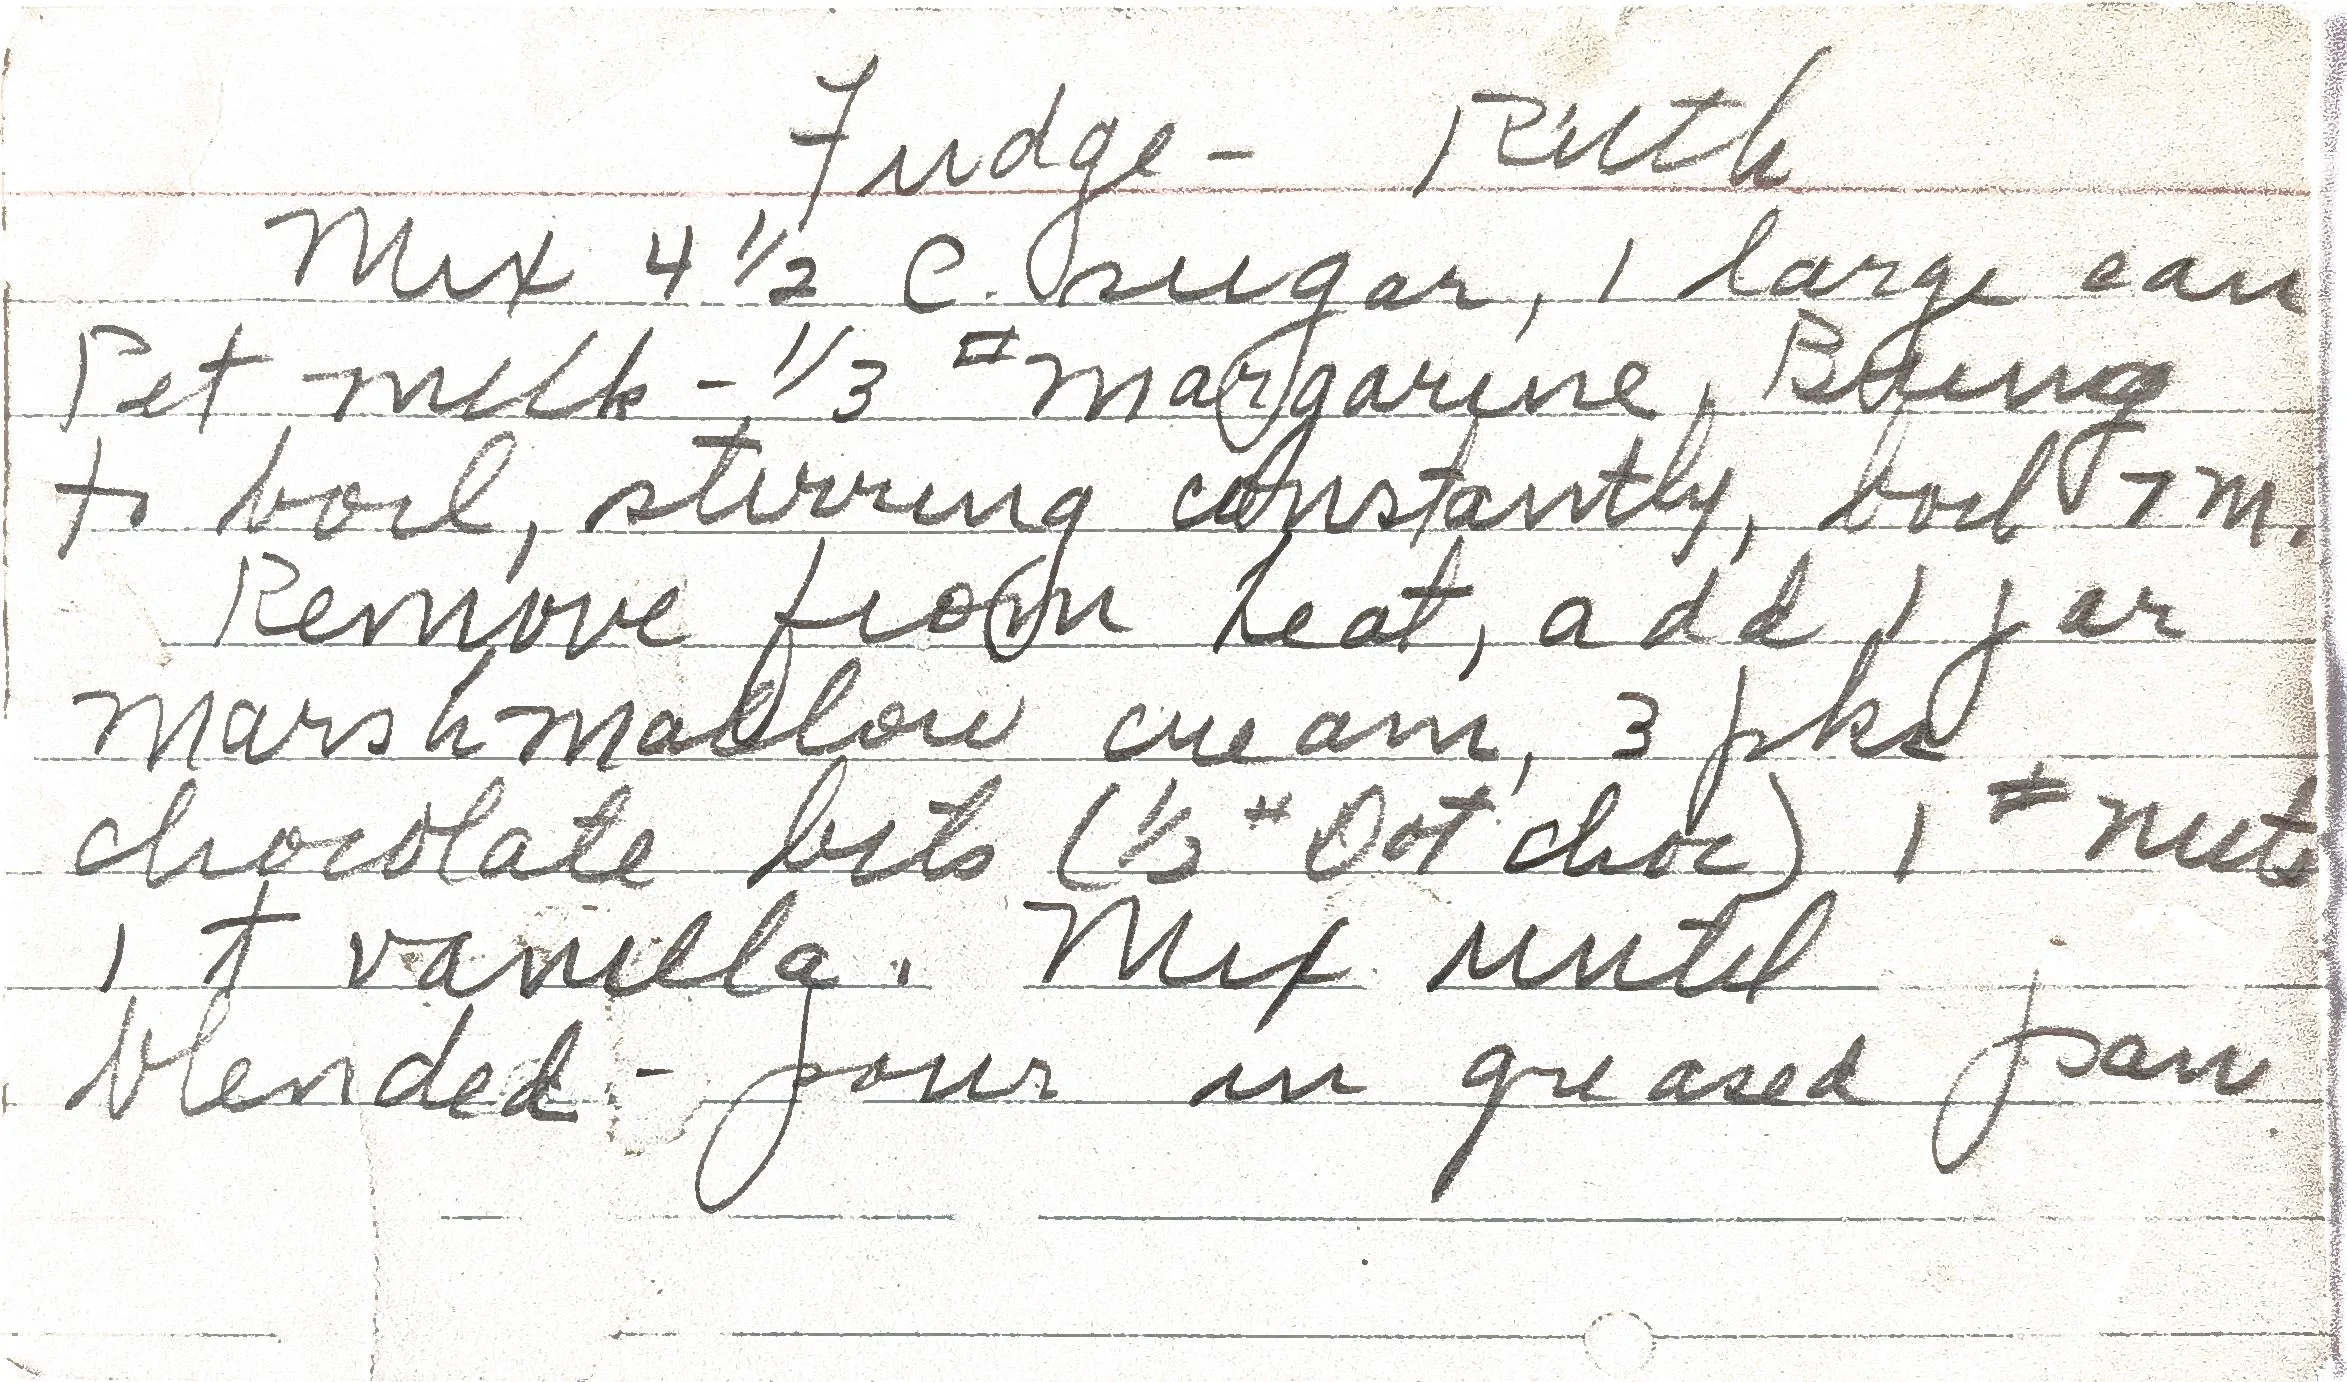 Fudge - Ruth
Mix 4 1/2 C. sugar, 1 large can
Pet milk - 1/3 # margarine, Bring
to boil, stirring constantly, boil 7 m.
Remove from heat, add 1 jar
marshmallow cream, 3 pks
chocolate bits (1/2 # Dot choc) 1 # nuts
1 t vanilla. Mix until
blended - pour in greased pan